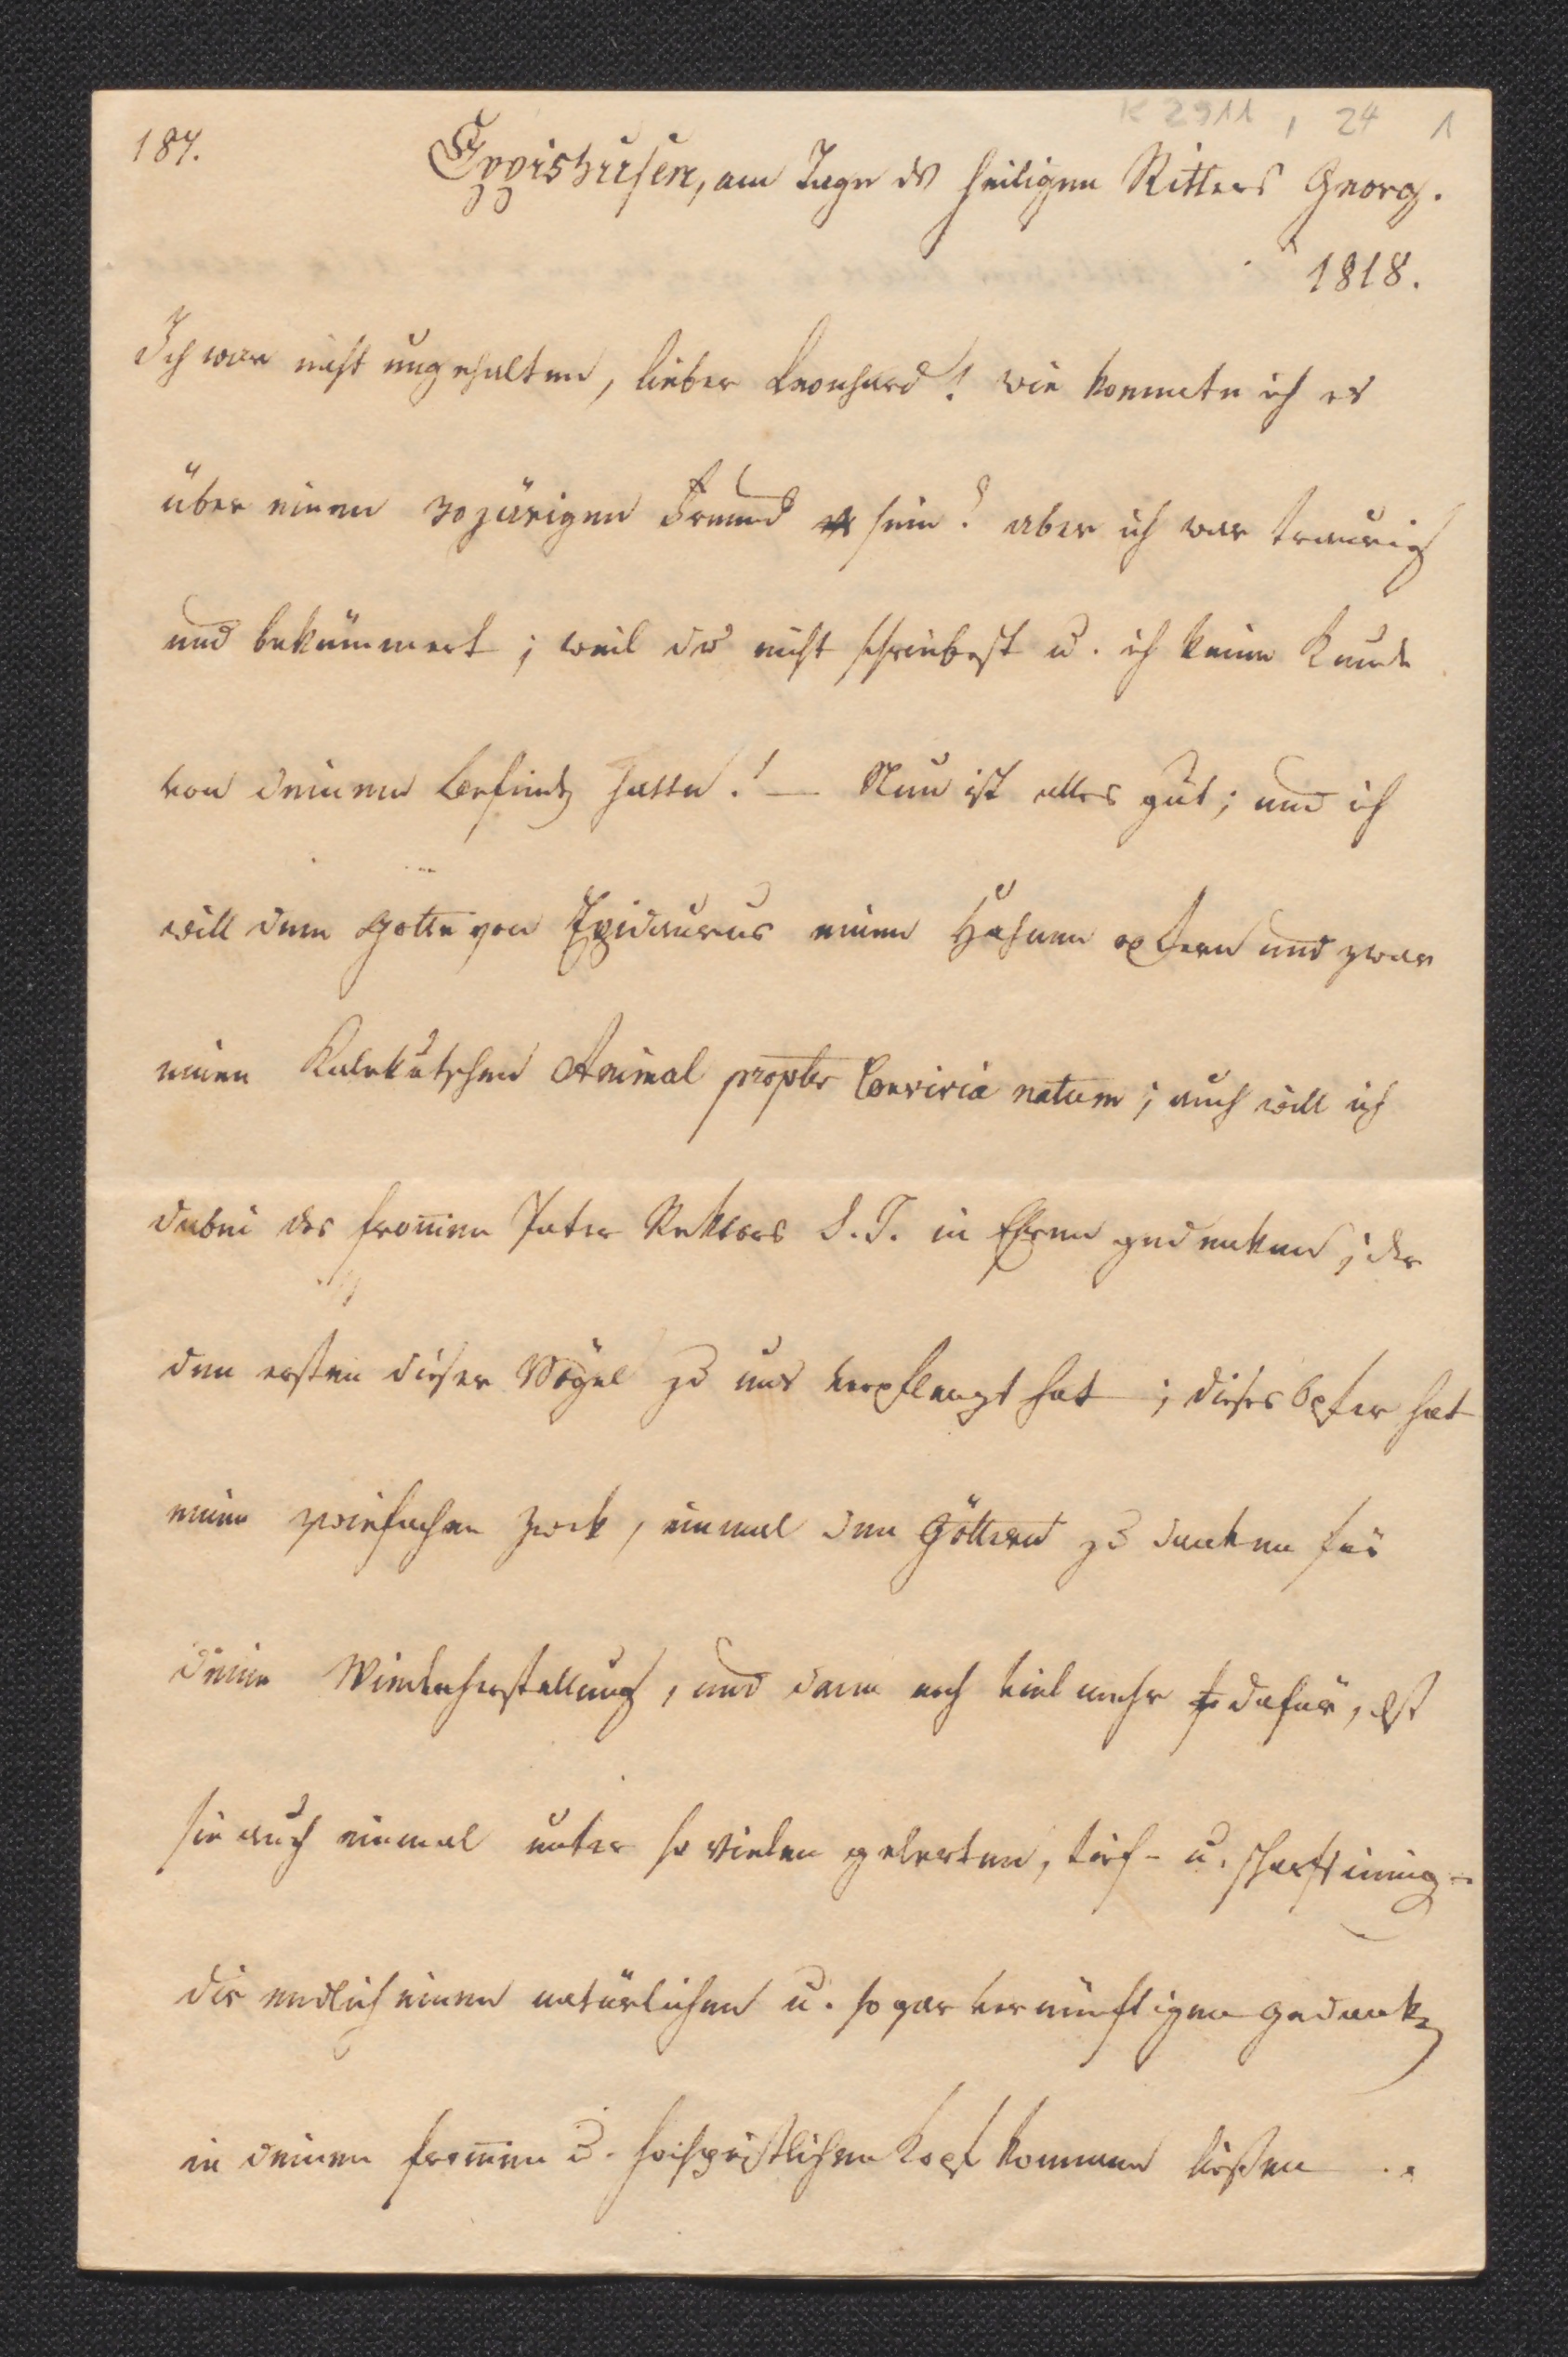 K 2911, 24 1
187.
Eppishusen, am Tage des heiligen Ritters Georg.
1818.
Ich war nicht ungehalten, lieber Leonhard! wie konnnte ich es
über einen 30järigen Freund sein? aber ich war traurig
und bekümmert; weil du nicht schriebest u. ich keine Kunde
von deinem Befinden hatte! — Nun ist alles gut; und ich
will dem Gotte von Epidaurus einen Hahnen opfern und zwar
einen Kalekutschen Animal propter Convivia natum; auch will ich
dabei des from̅en Pater Rektors S. J. in Ehren gedenken; der
den ersten dieser Vögel zu uns verpflanzt hat; dieses Opfer hat
einen zwiefachen Zwek, einmal den Göttern zu danken für
deine Wiederherstellung, und dann noch viel mehr dafür, dß
sie auch einmal unter so vielen gelerten, tief- u. scharfsinnigen
dir endlich einen natürlichen u. sogar vernünftigen Gedanken
in deinen from̅en u. hochgeistlichen Kopf kommen ließen ..